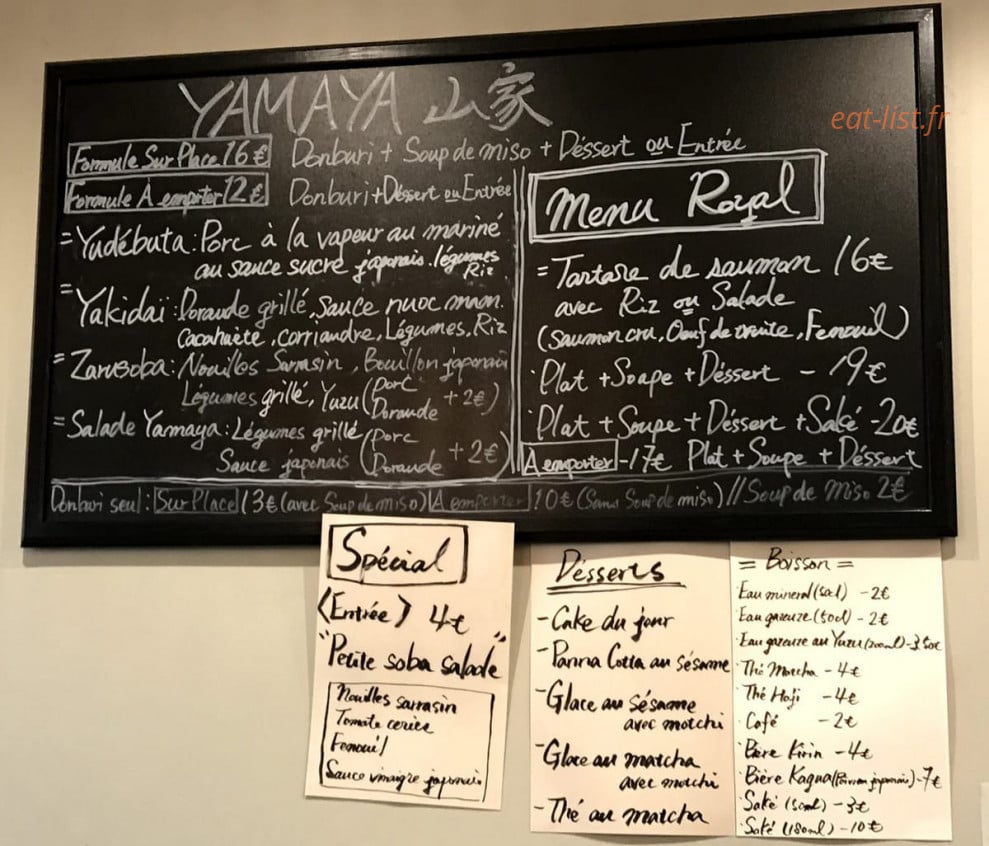 YAMAYA 山家
eat-list.fr
Formule Sur Place 16€ Donburi + Soup de miso + Déssert ou Entrée
Formule A emporter 12€ Donburi + Déssert ou Entrée
= Yudébuta : Porc à la vapeur au mariné
au sauce sucre japonais. légumes
Riz
= Yakidaï : Dorade grillé, Sauce nuoc mam.
Cacahaète, corriandre, Légumes, Riz
= Zarusoba : Nouilles Sarrasin, Bouillon japonais
Légumes grillé, Yuzu (Porc
Dorade + 2€)
= Salade Yamaya : Légumes grillé (Porc
Sauce japonais (Dorade + 2€)
Menu Royal
= Tartare de saumon 16€
avec Riz ou Salade
(Saumon cru, Oeuf de truite, Fenouil)
· Plat + Soupe + Déssert - 19€
· Plat + Soupe + Déssert + Saké - 20€
A emporter - 17€ Plat + Soupe + Déssert
Donburi seul : Sur Place 13€ (avec Soup de miso) A emporter 10€ (Sans Soup de miso) // Soup de Miso 2€
Spécial
<Entrée> 4€
"Petite soba salade"
Nouilles sarrasin
Tomate cerise
Fenouil
Sauce vinaigre japonais
Désserts
- Cake du jour
- Panna Cotta au sésame
- Glace au sésame
avec motchi
- Glace au matcha
avec motchi
- Thé au matcha
= Boisson =
· Eau mineral (50cl) - 2€
· Eau gazeuze (50cl) - 2€
· Eau gazeuze au Yuzu (200ml) - 3,50€
· Thé Matcha - 4€
· Thé Hoji - 4€
· Café - 2€
· Bière Kirin - 4€
· Bière Kagua (Poivron japonais) - 7€
· Saké (50ml) - 3€
· Saké (180ml) - 10€